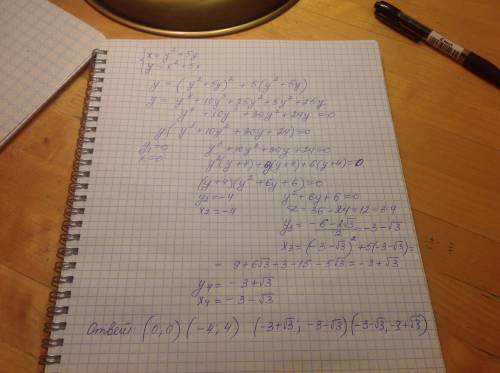 { x = y² + 5y
{ y = x² + 5x
y = (y² + 5y)² + 5(y² + 5y)
y = y⁴ + 10y³ + 25y² + 5y² + 25y
y⁴ + 10y³ + 30y² + 24y = 0
y(y³ + 10y² + 30y + 24) = 0
y₁ = 0 y³ + 10y² + 30y + 24 = 0
x₁ = 0 y²(y+4) + 6y(y+4) + 6(y+4) = 0
(y+4)(y² + 6y + 6) = 0
y₂ = -4 y² + 6y + 6 = 0
x₂ = -4 D = 36 - 24 = 12 = 3·4
y₃ = (-6 - 2√3)/2 = -3 - √3
x₃ = (-3-√3)² + 5(-3-√3) =
= 9 + 6√3 + 3 - 15 - 5√3 = -3 + √3
y₄ = -3 + √3
x₄ = -3 - √3
Ответ: (0,0) (-4, 4) (-3+√3, -3-√3) (-3-√3, -3+√3)